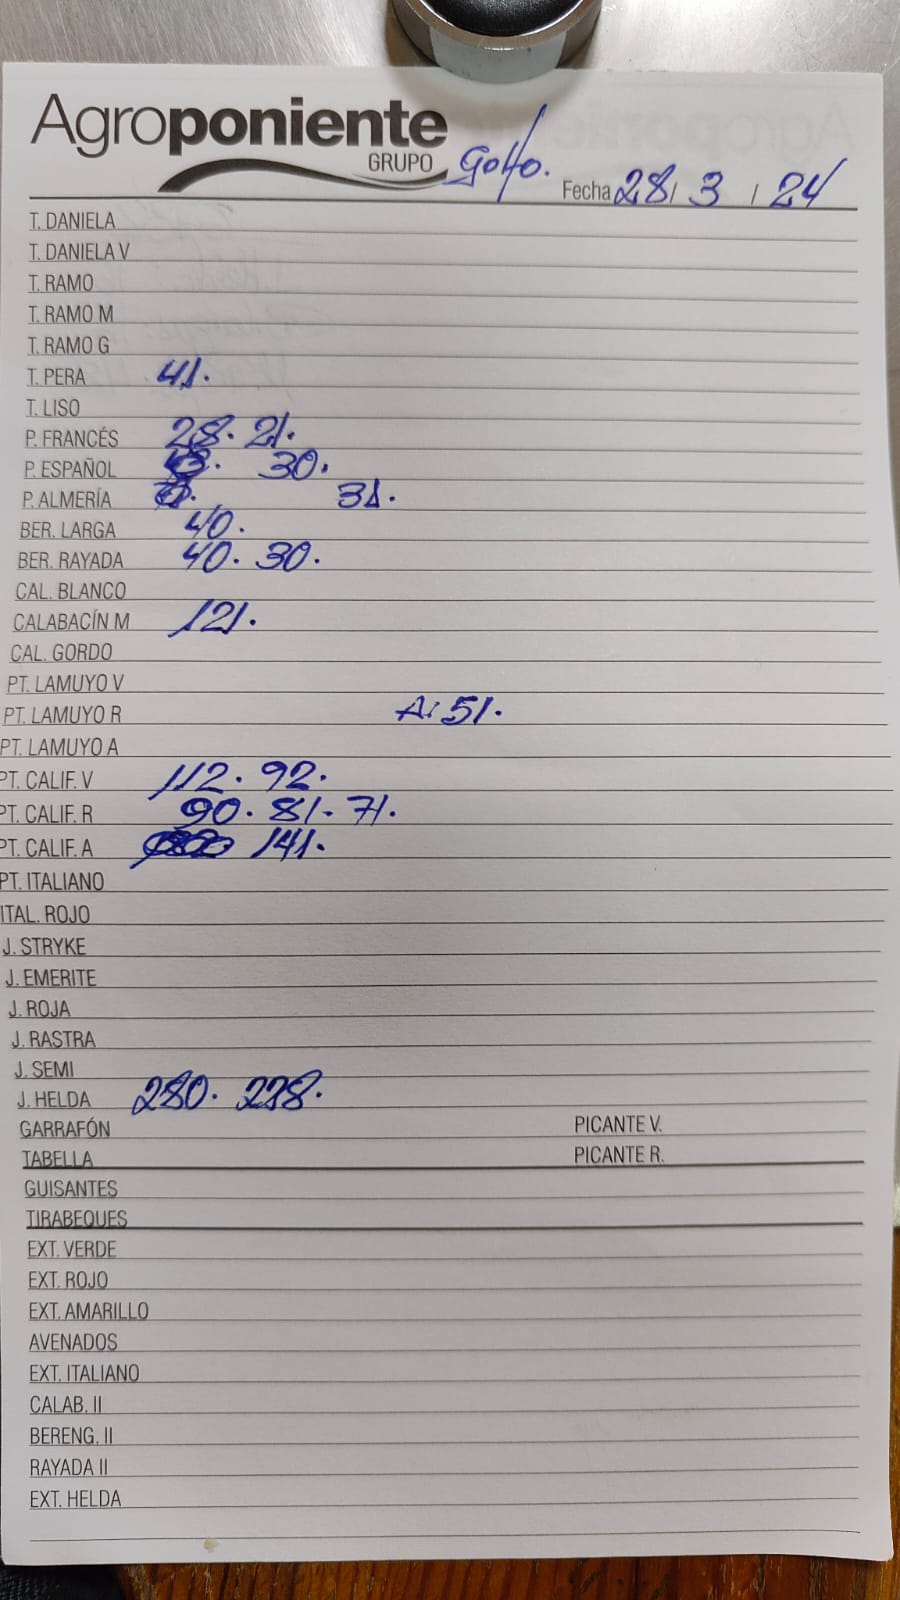 Agroponiente
GRUPO
Golfo.
Fecha 28/ 3 / 24
T. DANIELA
T. DANIELA V
T. RAMO
T. RAMO M
T. RAMO G
T. PERA 41.
T. LISO
P. FRANCÉS 28. 21.
P. ESPAÑOL 30.
P. ALMERÍA 31.
BER. LARGA 40.
BER. RAYADA 40. 30.
CAL. BLANCO
CALABACÍN M 121.
CAL. GORDO
PT. LAMUYO V
PT. LAMUYO R A: 51.
PT. LAMUYO A
PT. CALIF. V 112. 92.
PT. CALIF. R 90. 81. 71.
PT. CALIF. A 141.
PT. ITALIANO
ITAL. ROJO
J. STRYKE
J. EMERITE
J. ROJA
J. RASTRA
J. SEMI
J. HELDA 280. 228.
GARRAFÓN PICANTE V.
TABELLA PICANTE R.
GUISANTES
TIRABEQUES
EXT. VERDE
EXT. ROJO
EXT. AMARILLO
AVENADOS
EXT. ITALIANO
CALAB. II
BERENG. II
RAYADA II
EXT. HELDA